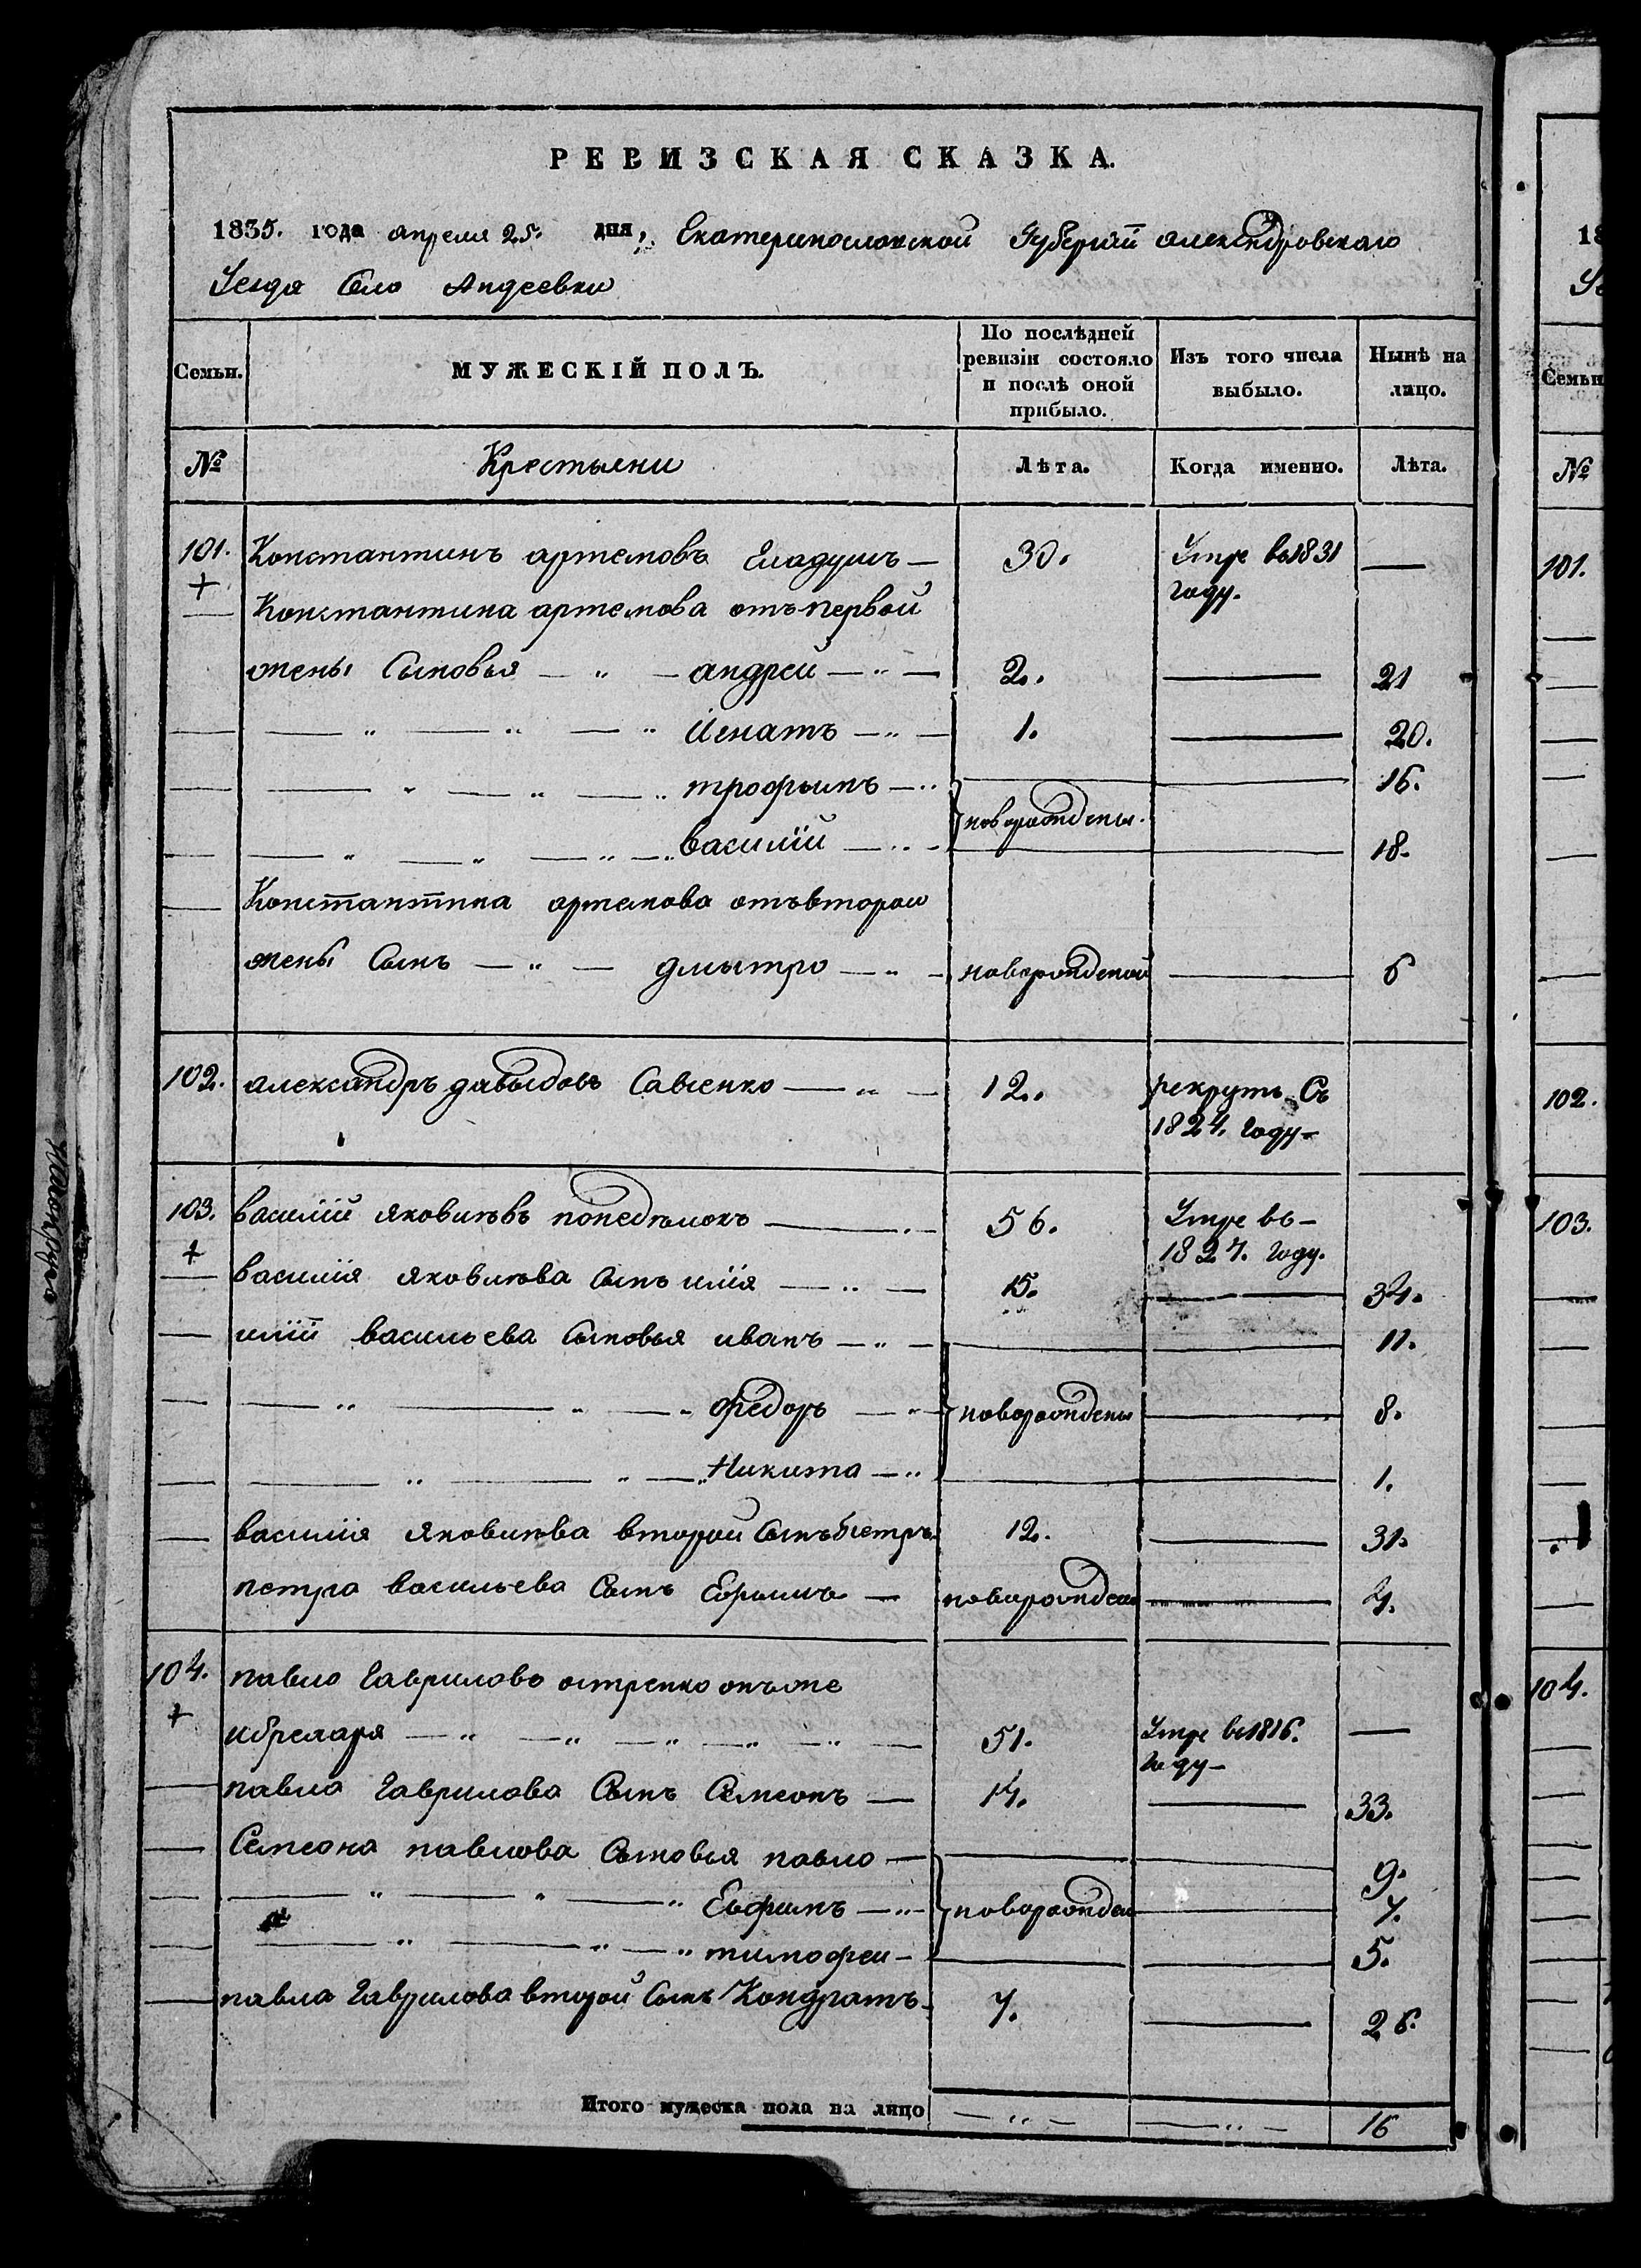 РЕВИЗСКАЯ СКАЗКА.
1835. года апреля 25. дня, Екатеринославской Губернии александровскаго
Уезда Село Андеевки
Семьи. МУЖЕСКІЙ ПОЛЪ. По послѣдней ревизіи состояло и послѣ оной прибыло. Изъ того числа выбыло. Нынѣ на лицо.
№ Крестьяни Лѣта. Когда именно. Лѣта.
101. Константинъ артемовъ 30. Умре въ 1831 году. —
Константина артемова отъ первой
жены Сыновья — „ — андрей — „ — 2. — 21
— „ — „ — „ Игнатъ — „ — 1. — 20.
— „ — „ — „ трофымъ — „ 16.
новорождены.
— „ — „ — „ — „ василій — „ — 18.
Константина артемова отъ второй
жены Сынъ — „ — дмытро — „ — новорожденой — 6
102. александръ давыдовъ Савенко — „ — 12. рекрутъ Съ 1824. году —
103. василій яковлѣвъ понедѣлокъ — 56. Умре въ — 1827. году.
василія яковлѣва Сынъ илія — „ — 15. — 34.
илій васильева Сыновья иванъ — „ — 11.
— „ — „ — „ федоръ — „ новорождены — 8.
— „ — „ — „ Никита — „ 1.
василія яковлѣва второй Сынъ Петръ 12. — 31.
петра васильева Сынъ Ефымъ — новорожден — 4.
104. павло Гавриловъ остренко онъ же
— „ — „ — „ — „ — „ — 51. Умре въ 1816. году — —
павла Гаврилова Сынъ Семеонъ — 14. — 33.
Семеона павлова Сыновья павло — 9.
— „ — „ — „ Ефимъ — „ новорожден — 7.
— „ — „ — „ тимофеи — 5.
павла Гаврилова второй Сынъ Кондратъ 7. — 26.
Итого мужеска пола на лицо — „ — — „ — 16
18
Семьи
№
101.
102.
103.
104.